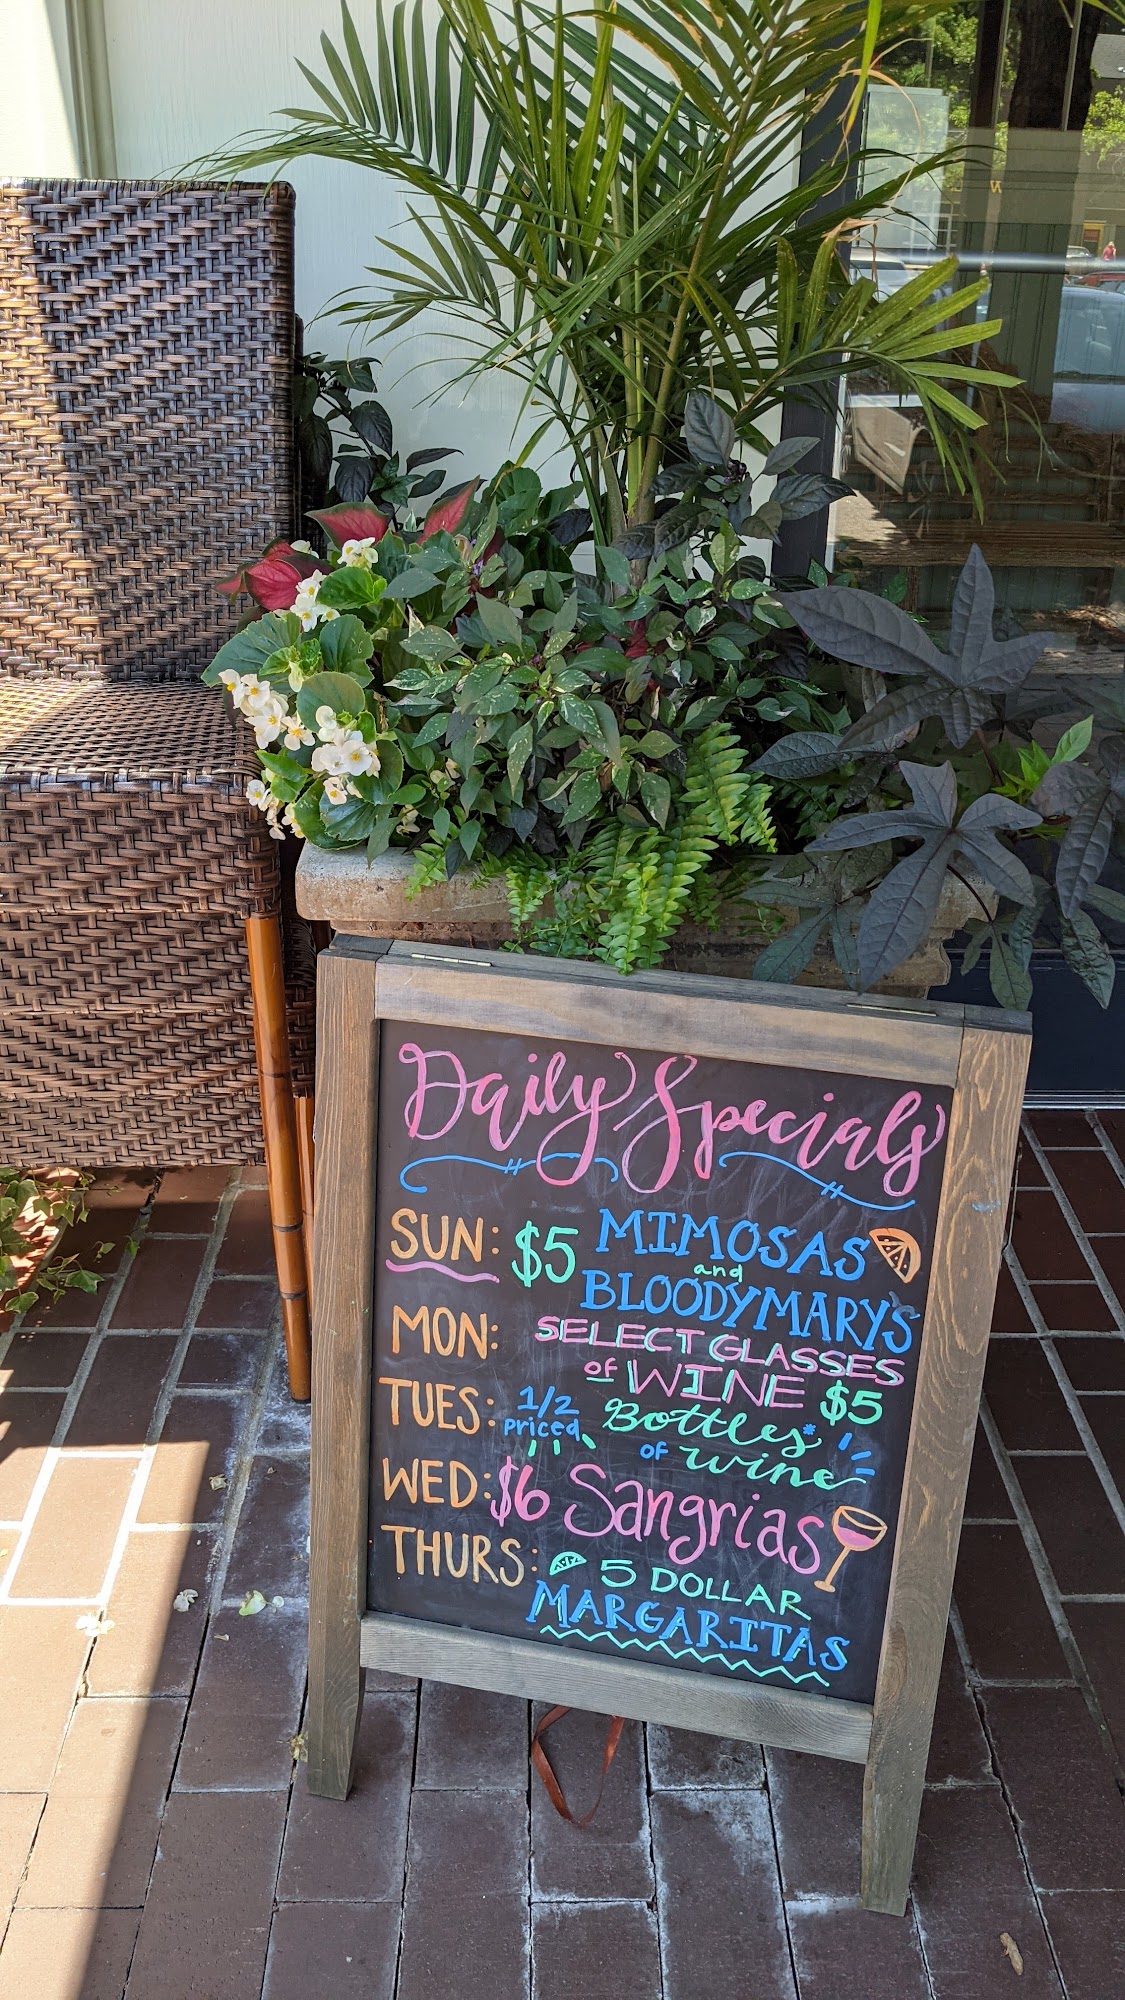 Daily Specials
SUN: $5 MIMOSAS
and
BLOODYMARY'S
MON: SELECT GLASSES
OF WINE $5
TUES: 1/2 Priced Bottles*
OF wine
WED: $6 Sangrias
THURS: 5 DOLLAR
MARGARITAS